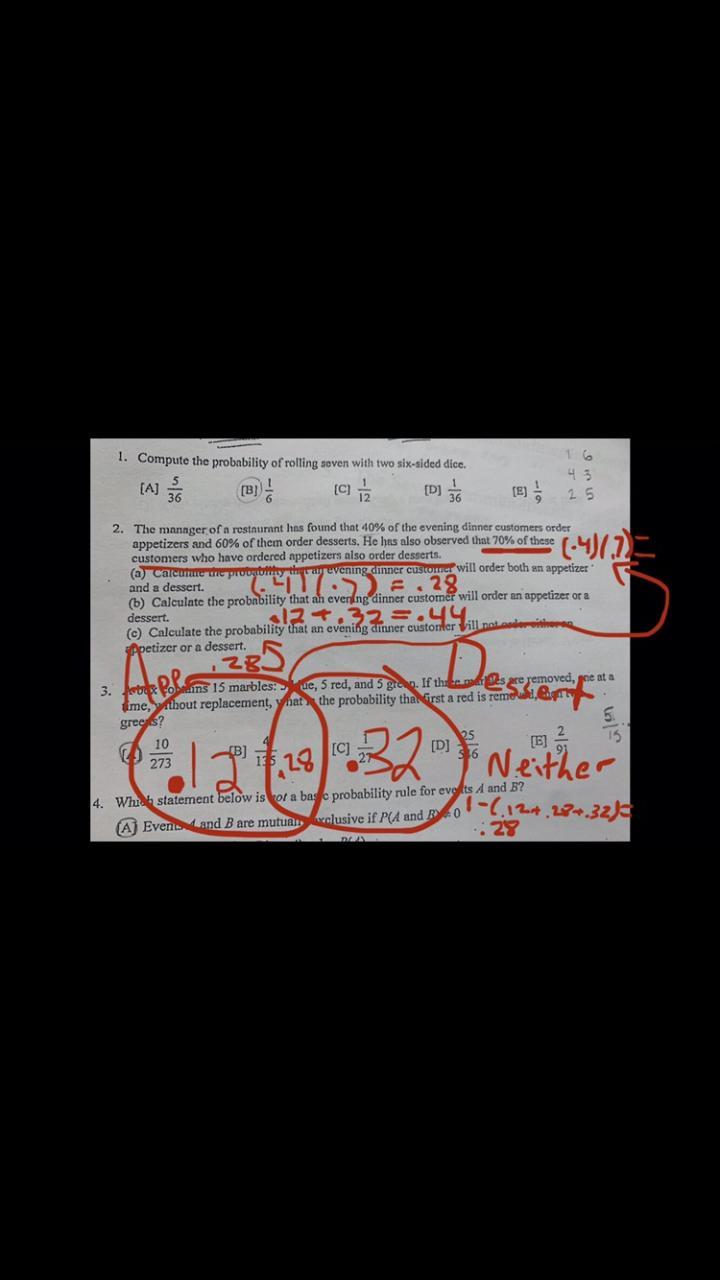 1. Compute the probability of rolling seven with two six-sided dice.
[A] 5/36 [B] 1/6 [C] 1/12 [D] 1/36 [E] 1/9
1 6
4 3
2 5
2. The manager of a restaurant has found that 40% of the evening dinner customers order
appetizers and 60% of them order desserts. He has also observed that 70% of these (.4)(.7)=
customers who have ordered appetizers also order desserts.
(a) Calculate the probability that an evening dinner customer will order both an appetizer
and a dessert. (.4)(.7) = .28
(b) Calculate the probability that an evening dinner customer will order an appetizer or a
dessert. .12 + .32 = .44
(c) Calculate the probability that an evening dinner customer will not order either an
appetizer or a dessert. .28
App Dessert
3. A box contains 15 marbles: 5 blue, 5 red, and 5 green. If three marbles are removed, one at a
time, without replacement, what is the probability that first a red is removed, then two
greens?
5/15
[A] 10/273 [B] 4/135 [C] 1/27 [D] 25/546 [E] 2/91
.12 .28 .32 Neither
4. Which statement below is not a basic probability rule for events A and B?
1-(.12+.28+.32)=
.28
[A] Events A and B are mutually exclusive if P(A and B) = 0